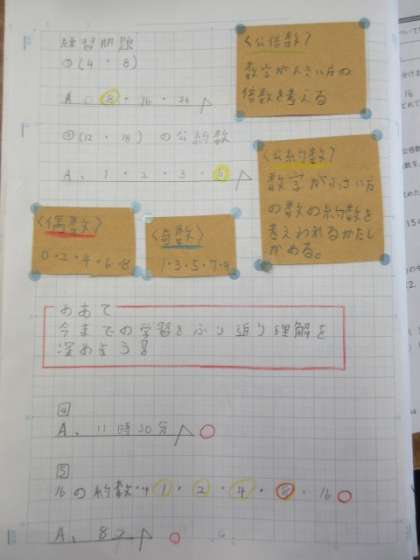 練習問題
①(4・8)
A. 8・16・24
②(12・18)の公約数
A. 1・2・3・6
<公倍数>
数字が大きい方の
倍数を考える
<公約数>
数字が小さい方
の数の約数を
考えわれるかたし
かめる。
<偶数>
0・2・4・6・8
<奇数>
1・3・5・7・9
めあて
今までの学習をふり張り理解を
深めよう!
4
A. 11時20分
5
16の約数…1・2・4・8・16